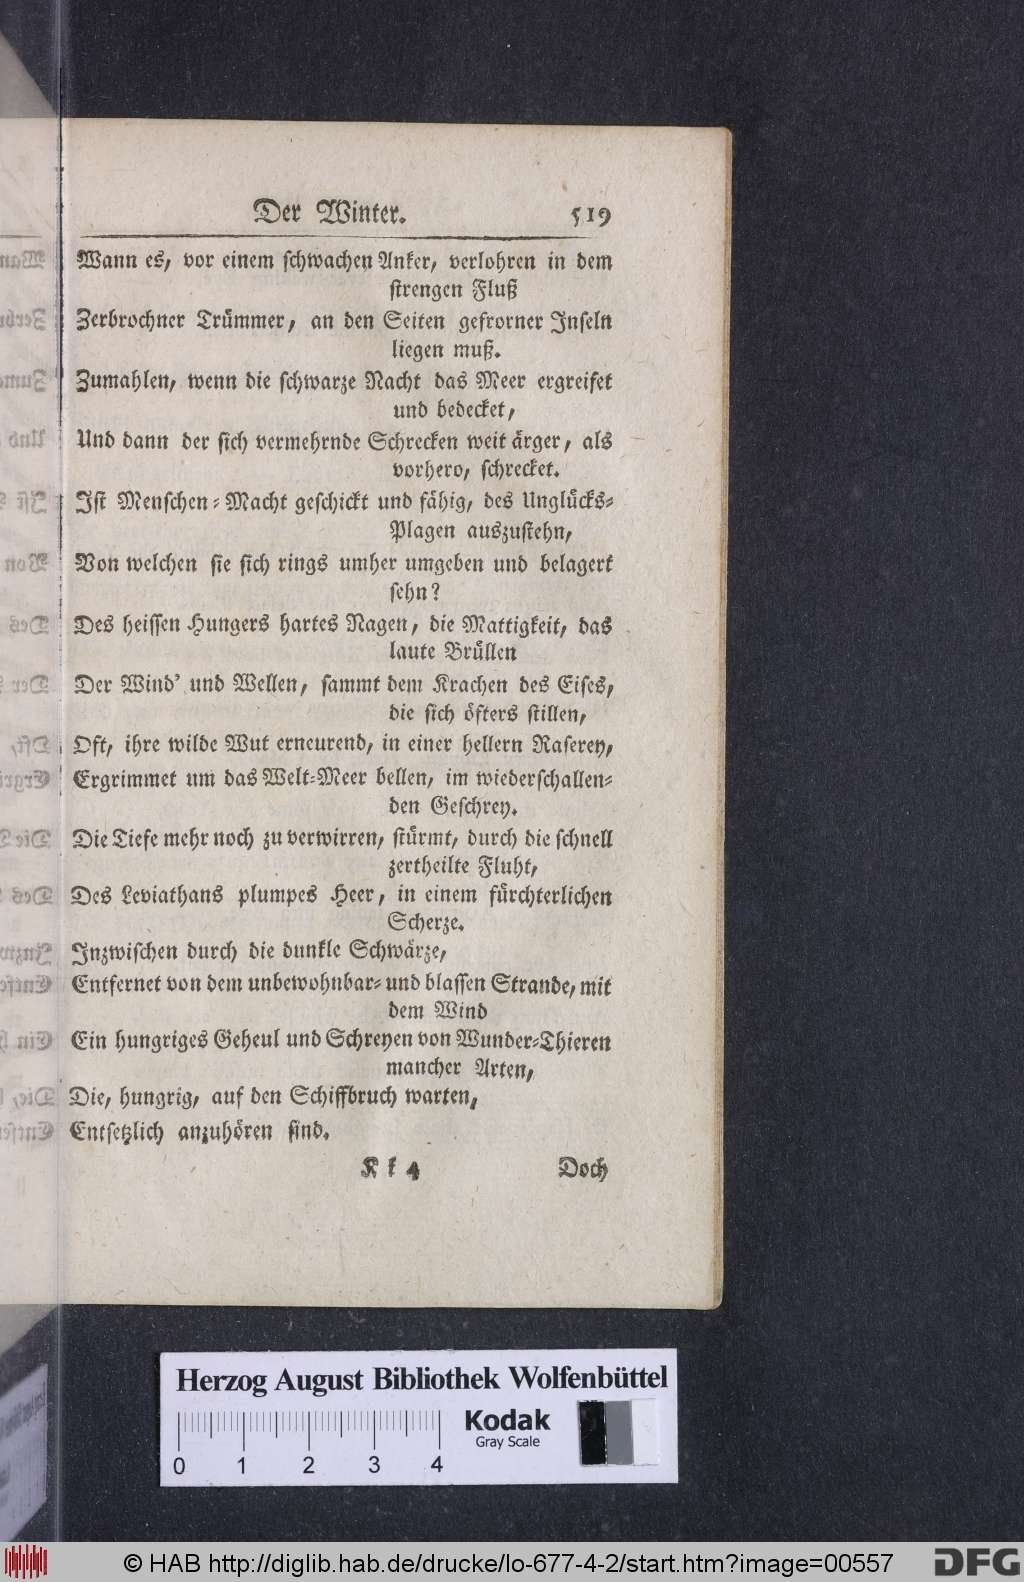 Der Winter. 519
Wann es, vor einem schwachen Anker, verlohren in dem
strengen Fluß
Zerbrochner Trümmer, an den Seiten gefrorner Inseln
liegen muß.
Zumahlen, wenn die schwarze Nacht das Meer ergreifet
und bedecket,
Und dann der sich vermehrnde Schrecken weit ärger, als
vorhero, schrecket.
Ist Menschen-Macht geschickt und fähig, des Unglücks-
Plagen auszustehn,
Von welchen sie sich rings umher umgeben und belagert
sehn?
Des heissen Hungers hartes Nagen, die Mattigkeit, das
laute Brüllen
Der Wind' und Wellen, sammt dem Krachen des Eises,
die sich öfters stillen,
Oft, ihre wilde Wut erneurend, in einer hellern Raserey,
Ergrimmet um das Welt-Meer bellen, im wiederschallen-
den Geschrey.
Die Tiefe mehr noch zu verwirren, stürmt, durch die schnell
zertheilte Fluht,
Des Leviathans plumpes Heer, in einem fürchterlichen
Scherze.
Inzwischen durch die dunkle Schwärze,
Entfernet von dem unbewohnbar- und blassen Strande, mit
dem Wind
Ein hungriges Geheul und Schreyen von Wunder-Thieren
mancher Arten,
Die, hungrig, auf den Schiffbruch warten,
Entsetzlich anzuhören sind.
Kk 4 Doch
Herzog August Bibliothek Wolfenbüttel
Kodak
Gray Scale
0 1 2 3 4
© HAB http://diglib.hab.de/drucke/lo-677-4-2/start.htm?image=00557
DFG